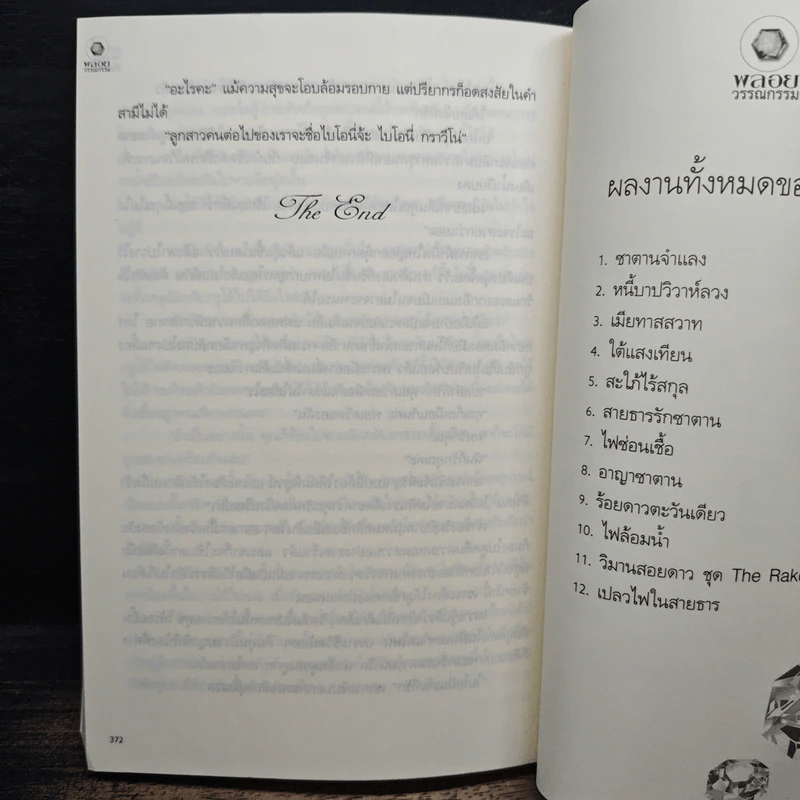 พลอย
วรรณกรรม
"อะไรคะ" แม้ความสุขจะโอบล้อมรอบกาย แต่ปรียากรก็อดสงสัยในคำ
สามีไม่ได้
"ลูกสาวคนต่อไปของเราจะชื่อไบโอนี่จ้ะ ไบโอนี่ กราวีโน่"
The End
372
พลอย
วรรณกรรม
ผลงานทั้งหมดขอ
1. ซาตานจำแลง
2. หนี้บาปวิวาห์ลวง
3. เมียทาสสวาท
4. ใต้แสงเทียน
5. สะใภ้ไร้สกุล
6. สายธารรักซาตาน
7. ไฟซ่อนเชื้อ
8. อาญาซาตาน
9. ร้อยดาวตะวันเดียว
10. ไฟล้อมน้ำ
11. วิมานสอยดาว ชุด The Rake
12. เปลวไฟในสายธาร